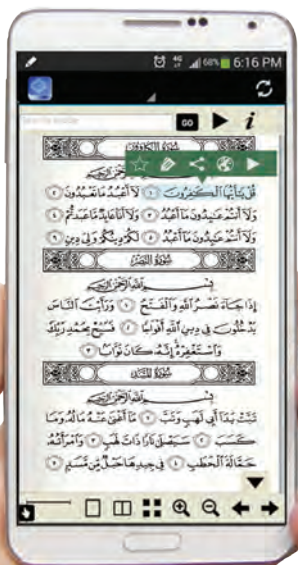 4G 68% 6:16 PM
GO i
سُورَةُ الكَافِرُونَ
بِسْمِ ٱللَّهِ ٱلرَّحْمَٰنِ ٱلرَّحِيمِ
قُلْ يَٰٓأَيُّهَا ٱلْكَٰفِرُونَ ١ لَآ أَعْبُدُ مَا تَعْبُدُونَ ٢
وَلَآ أَنتُمْ عَٰبِدُونَ مَآ أَعْبُدُ ٣ وَلَآ أَنَا۠ عَابِدٌ مَّا عَبَدتُّمْ ٤
وَلَآ أَنتُمْ عَٰبِدُونَ مَآ أَعْبُدُ ٥ لَكُمْ دِينُكُمْ وَلِىَ دِينِ ٦
سُورَةُ النَّصْرِ
بِسْمِ ٱللَّهِ ٱلرَّحْمَٰنِ ٱلرَّحِيمِ
إِذَا جَآءَ نَصْرُ ٱللَّهِ وَٱلْفَتْحُ ١ وَرَأَيْتَ ٱلنَّاسَ
يَدْخُلُونَ فِى دِينِ ٱللَّهِ أَفْوَاجًا ٢ فَسَبِّحْ بِحَمْدِ رَبِّكَ
وَٱسْتَغْفِرْهُ إِنَّهُۥ كَانَ تَوَّابًۢا ٣
سُورَةُ المَسَدِ
بِسْمِ ٱللَّهِ ٱلرَّحْمَٰنِ ٱلرَّحِيمِ
تَبَّتْ يَدَآ أَبِى لَهَبٍ وَتَبَّ ١ مَآ أَغْنَىٰ عَنْهُ مَالُهُۥ وَمَا
كَسَبَ ٢ سَيَصْلَىٰ نَارًا ذَاتَ لَهَبٍ ٣ وَٱمْرَأَتُهُۥ
حَمَّالَةَ ٱلْحَطَبِ ٤ فِى جِيدِهَا حَبْلٌ مِّن مَّسَدٍۭ ٥